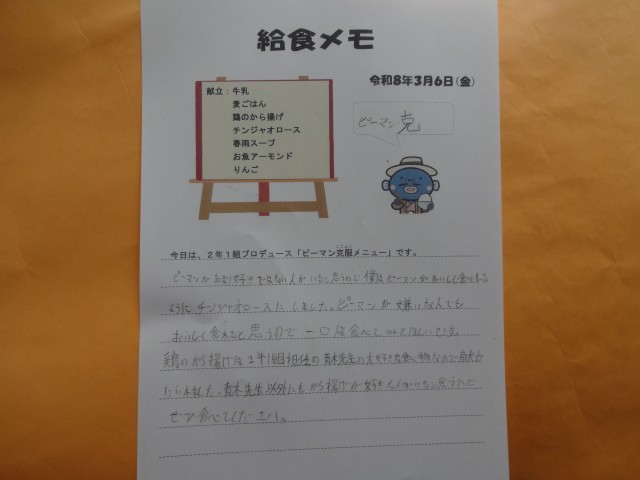 給食メモ
令和8年3月6日(金)
献立：牛乳
麦ごはん
鶏のから揚げ
チンジャオロース
春雨スープ
お魚アーモンド
りんご
ピーマン 克
今日は、２年１組プロデュース「ピーマン克服メニュー」です。
ピーマンがあまり好きではない人がいると思うので僕はピーマンがおいしく食べれる
ようにチンジャオロースにしました。ピーマンが嫌いな人でも
おいしく食べれると思うので一口は食べてみてほしいです。
鶏のから揚げは2年1組担任の青木先生の大好きな食べ物なので献立
にいれました。青木先生以外にもから揚げが好きな人がいると思うので
ぜひ食べてください。